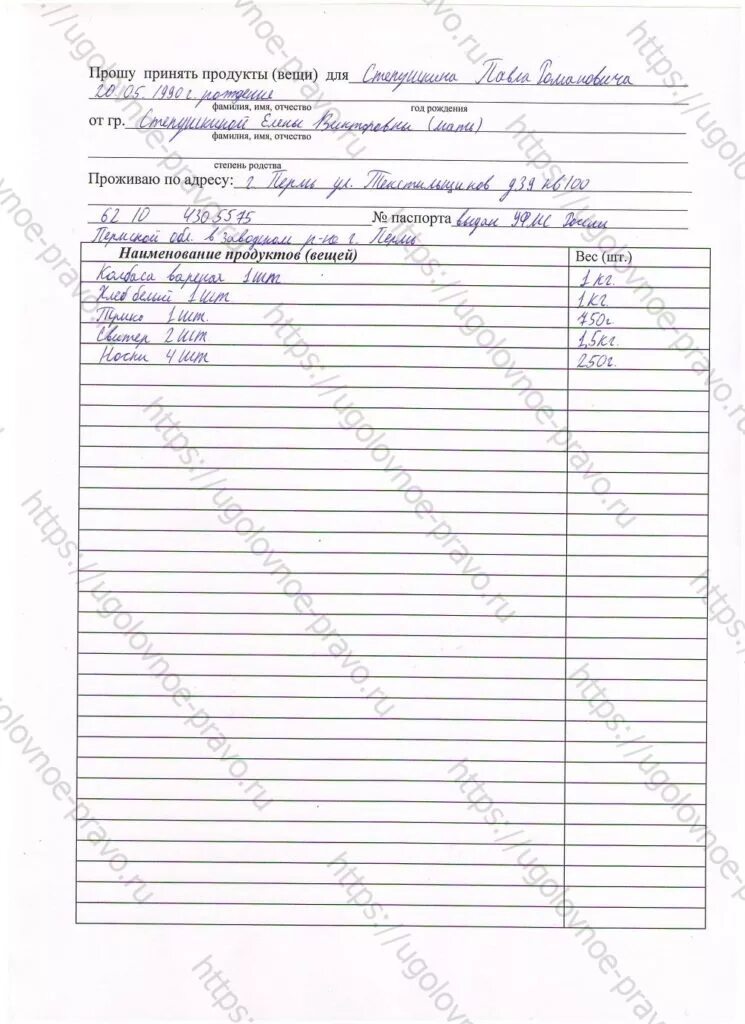 Прошу принять продукты (вещи) для Степушкина Павла Романовича
20.05.1990 г. рождение
фамилия, имя, отчество год рождения
от гр. Степушкиной Елены Викторовны (мать)
фамилия, имя, отчество
степень родства
Проживаю по адресу: г. Пермь ул. Текстильщиков д39 кв100
62 10 4305575 № паспорта выдан УФМС России
Пермской обл. в заводском р-не г. Пермь
Наименование продуктов (вещей) Вес (шт.)
Колбаса вареная 1шт 1 кг.
Хлеб белый 1 шт 1кг.
Трико 1 шт. 750г.
Свитер 2 шт 1,5кг.
Носки 4 шт 250г.
https://ugolovnoe-pravo.ru